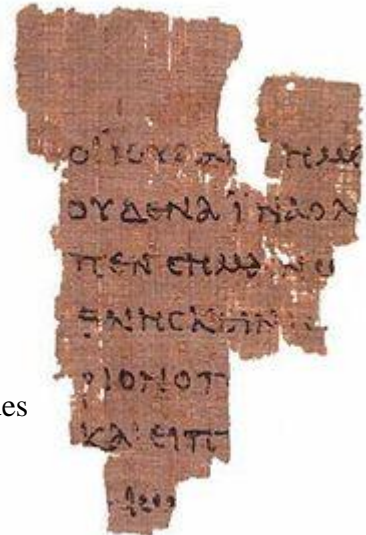 ΟΙ ΙΟΥΔΑΙ ΗΜΕ
ΟΥΔΕΝΑ ΙΝΑ Ο Λ
ΠΕΝ CΗΜΑΙΝΩ
ΘΝΗCΚΕΙΝ ΙC
ΡΙΟΝ Ο Π
es
ΚΑΙ ΕΙΠ